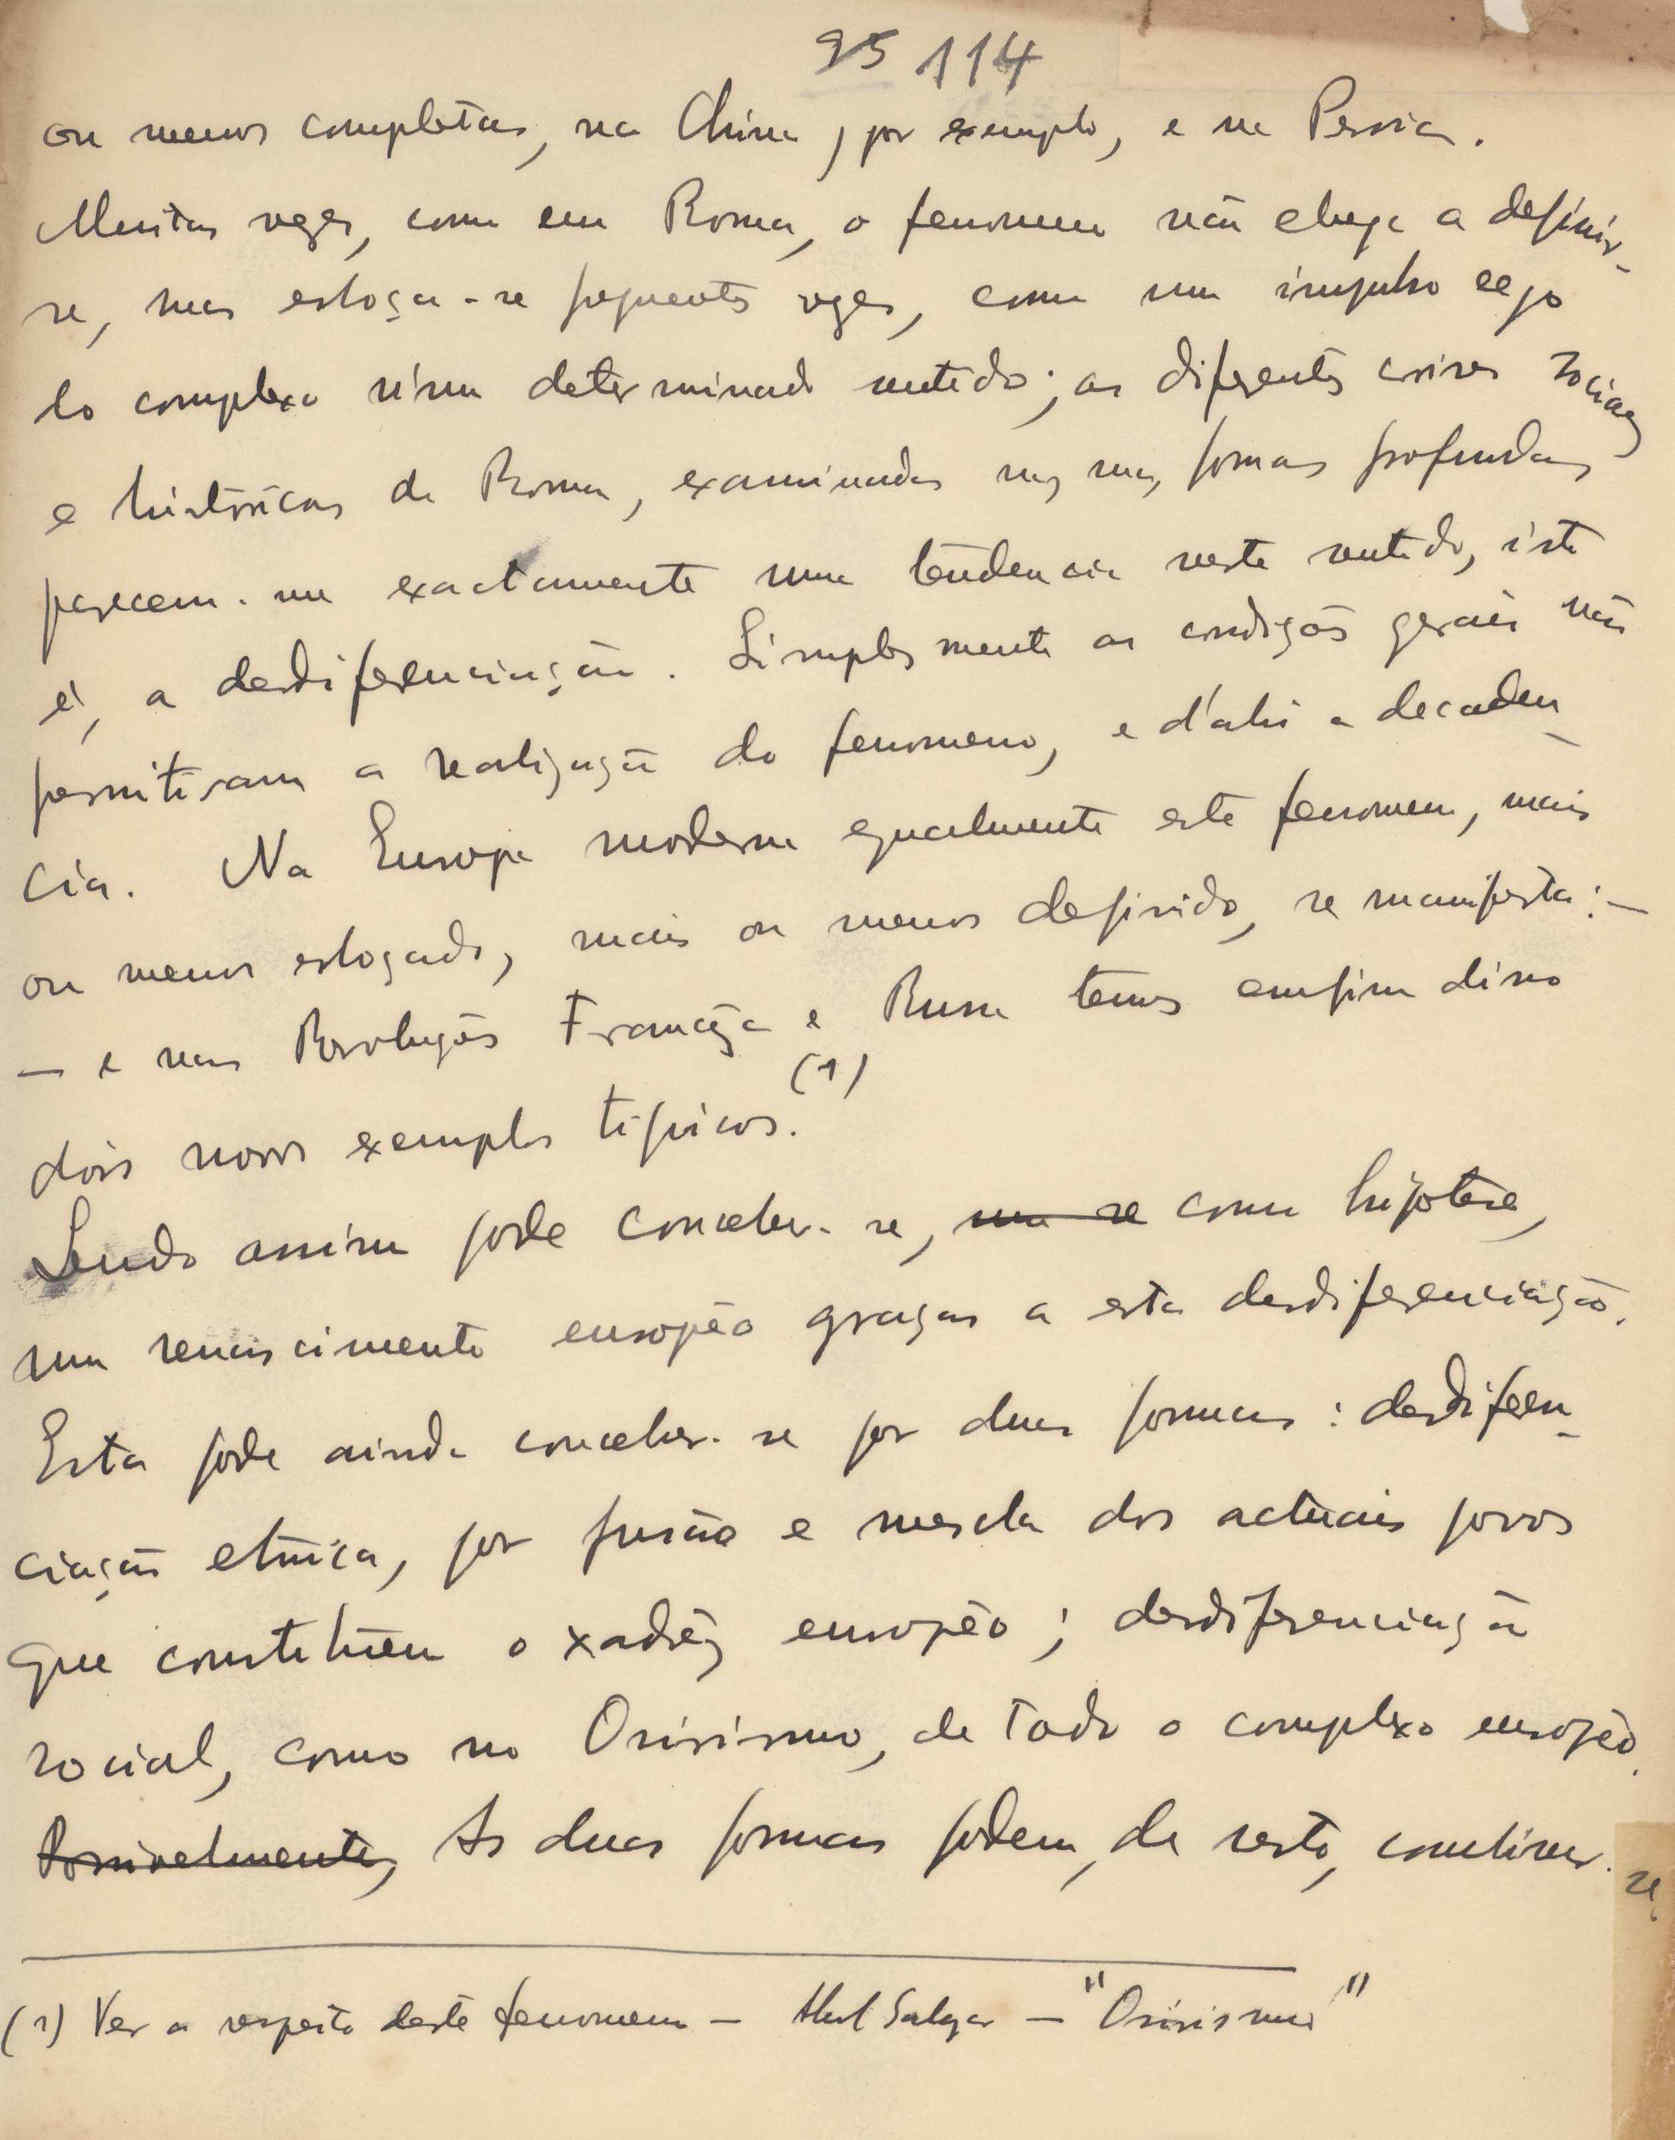 95 114
ou menos completas, na China, por exemplo, e na Persia.
Muitas vezes, como em Roma, o fenomeno não chega a definir-
se, mas esboça-se frequentes vezes, como um impulso cego
do complexo n'um determinado sentido; as diferentes crises sociaes
e históricas de Roma, examinadas nas suas formas profundas
parecem-me exactamente uma tendencia neste sentido, isto
é, a desdiferenciação. Simplesmente as condições gerais não
permitiram a realização do fenomeno, e d'ahi a decaden-
cia. Na Europa moderna egualmente este fenomeno, mais
ou menos esboçado, mais ou menos definido, se manifesta: —
— e nas Revoluções Franceza e Russa temos emfim disso
dois novos exemplos tipicos. (1)
Sendo assim pode conceber-se, como hipotese,
um renascimento européo graças a esta desdiferenciação.
Esta pode ainda conceber-se por duas formas: desdiferen-
ciação etnica, por fusão e mescla dos actuais povos
que constituem o xadrêz européo; desdiferenciação
social, como no Osirismo, de todo o complexo européo.
Possivelmente, As duas formas podem, de resto, combinar-se.
(1) Ver a respeito deste fenomeno — Abel Salazar — "Osirismo"